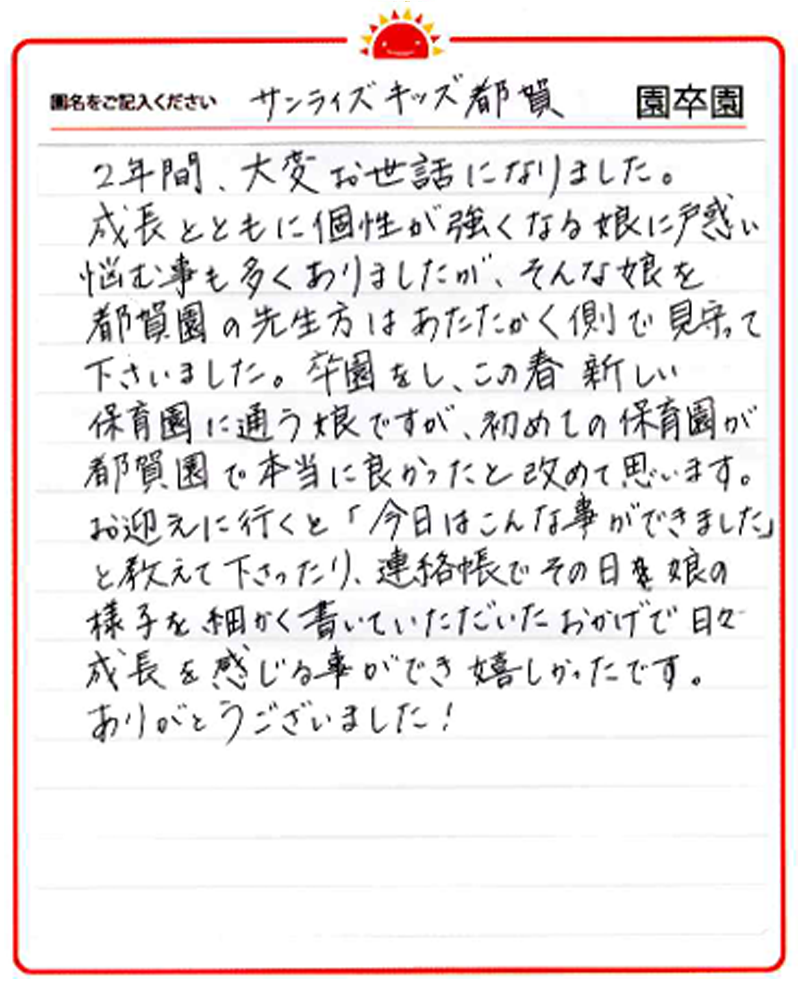 園名をご記入ください サンライズキッズ都賀 園卒園
2年間、大変お世話になりました。
成長とともに個性が強くなる娘に戸惑い
悩む事も多くありましたが、そんな娘を
都賀園の先生方はあたたかく側で見守って
下さいました。卒園をし、この春 新しい
保育園に通う娘ですが、初めての保育園が
都賀園で本当に良かったと改めて思います。
お迎えに行くと「今日はこんな事ができました」
と教えて下さったり、連絡帳でその日も娘の
様子を細かく書いていただいたおかげで日々
成長を感じる事ができ嬉しかったです。
ありがとうございました!